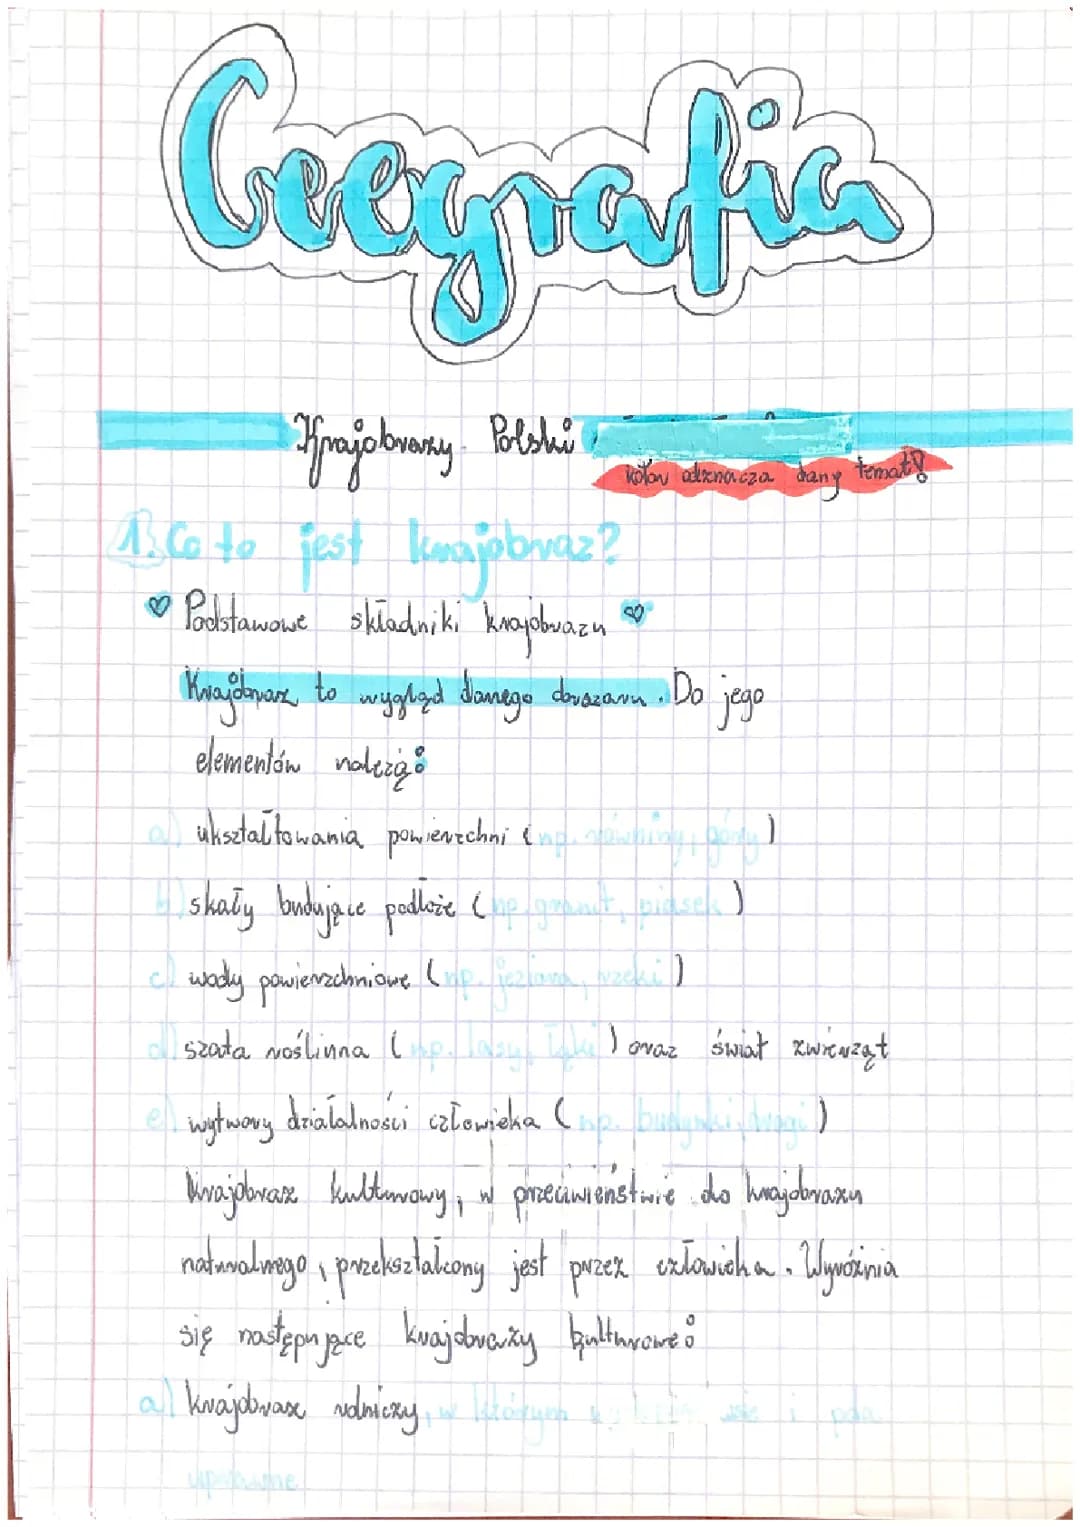 Geografia
Krajobrazy Polski
kolor oznacza dany temat!
1. Co to jest krajobraz?
♡ Podstawowe składniki krajobrazu ♡
Krajobraz to wygląd danego obszaru. Do jego
elementów należą:
a) ukształtowania powierzchni (np. równiny, góry)
b) skały budujące podłoże (np. granit, piasek)
c) wody powierzchniowe (np. jeziora, rzeki)
d) szata roślinna (np. lasy, łąki) oraz świat zwierząt
e) wytwory działalności człowieka (np. budynki, drogi)
Krajobraz kulturowy, w przeciwieństwie do krajobrazu
naturalnego, przekształcony jest przez człowieka. Wyróżnia
się następujące krajobrazy kulturowe:
a) krajobraz rolniczy, w którym się i pola
uprawne